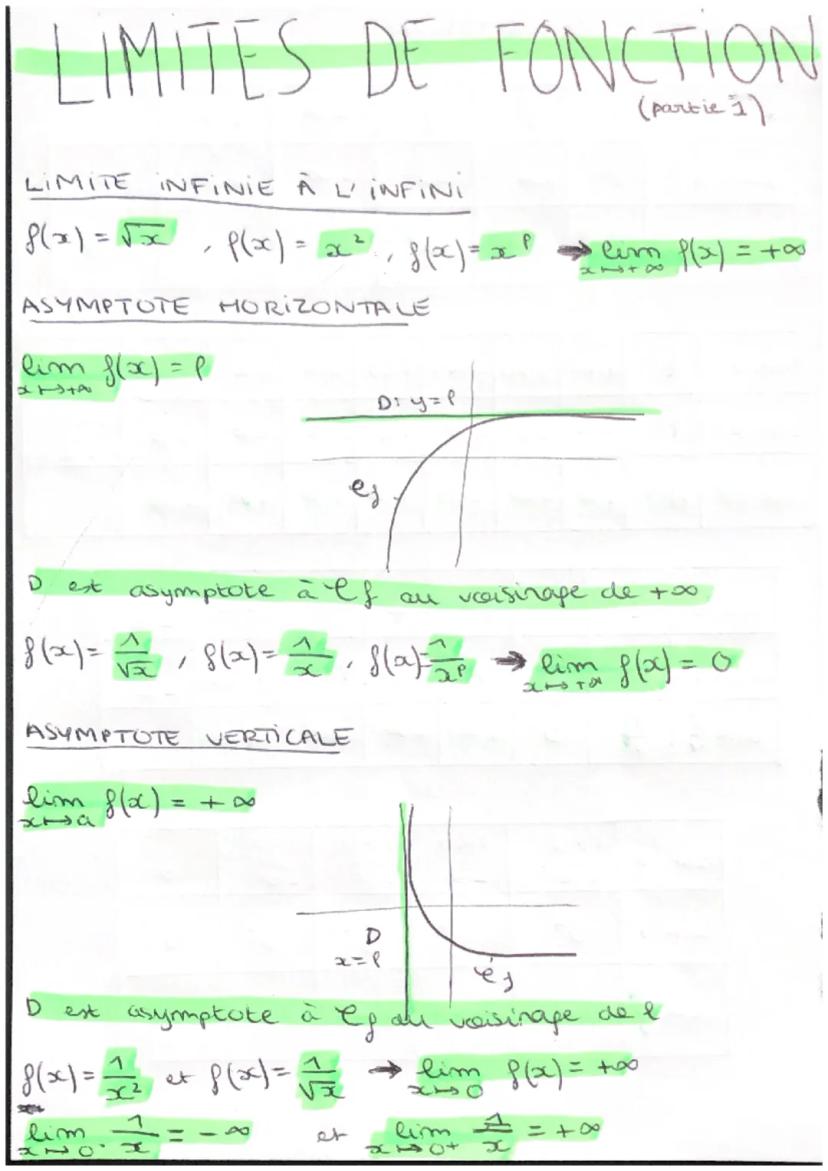 LIMITES DE FONCTION
(partie 1)
LIMITE INFINIE À L'INFINI
f(x) = √x , f(x) = x² , f(x) = xᵖ → lim x↦+∞ f(x) = +∞
ASYMPTOTE HORIZONTALE
lim x↦+∞ f(x) = ℓ
D: y = ℓ
𝒞f
D est asymptote à 𝒞f au voisinage de +∞
f(x) = 1/√x , f(x) = 1/x , f(x) = 1/xᵖ → lim x↦+∞ f(x) = 0
ASYMPTOTE VERTICALE
lim x↦a f(x) = +∞
D
x = ℓ
𝒞f
D est asymptote à 𝒞f au voisinage de ℓ
f(x) = 1/x² et f(x) = 1/√x → lim x↦0 f(x) = +∞
lim x↦0⁻ 1/x = -∞ et lim x↦0⁺ 1/x = +∞